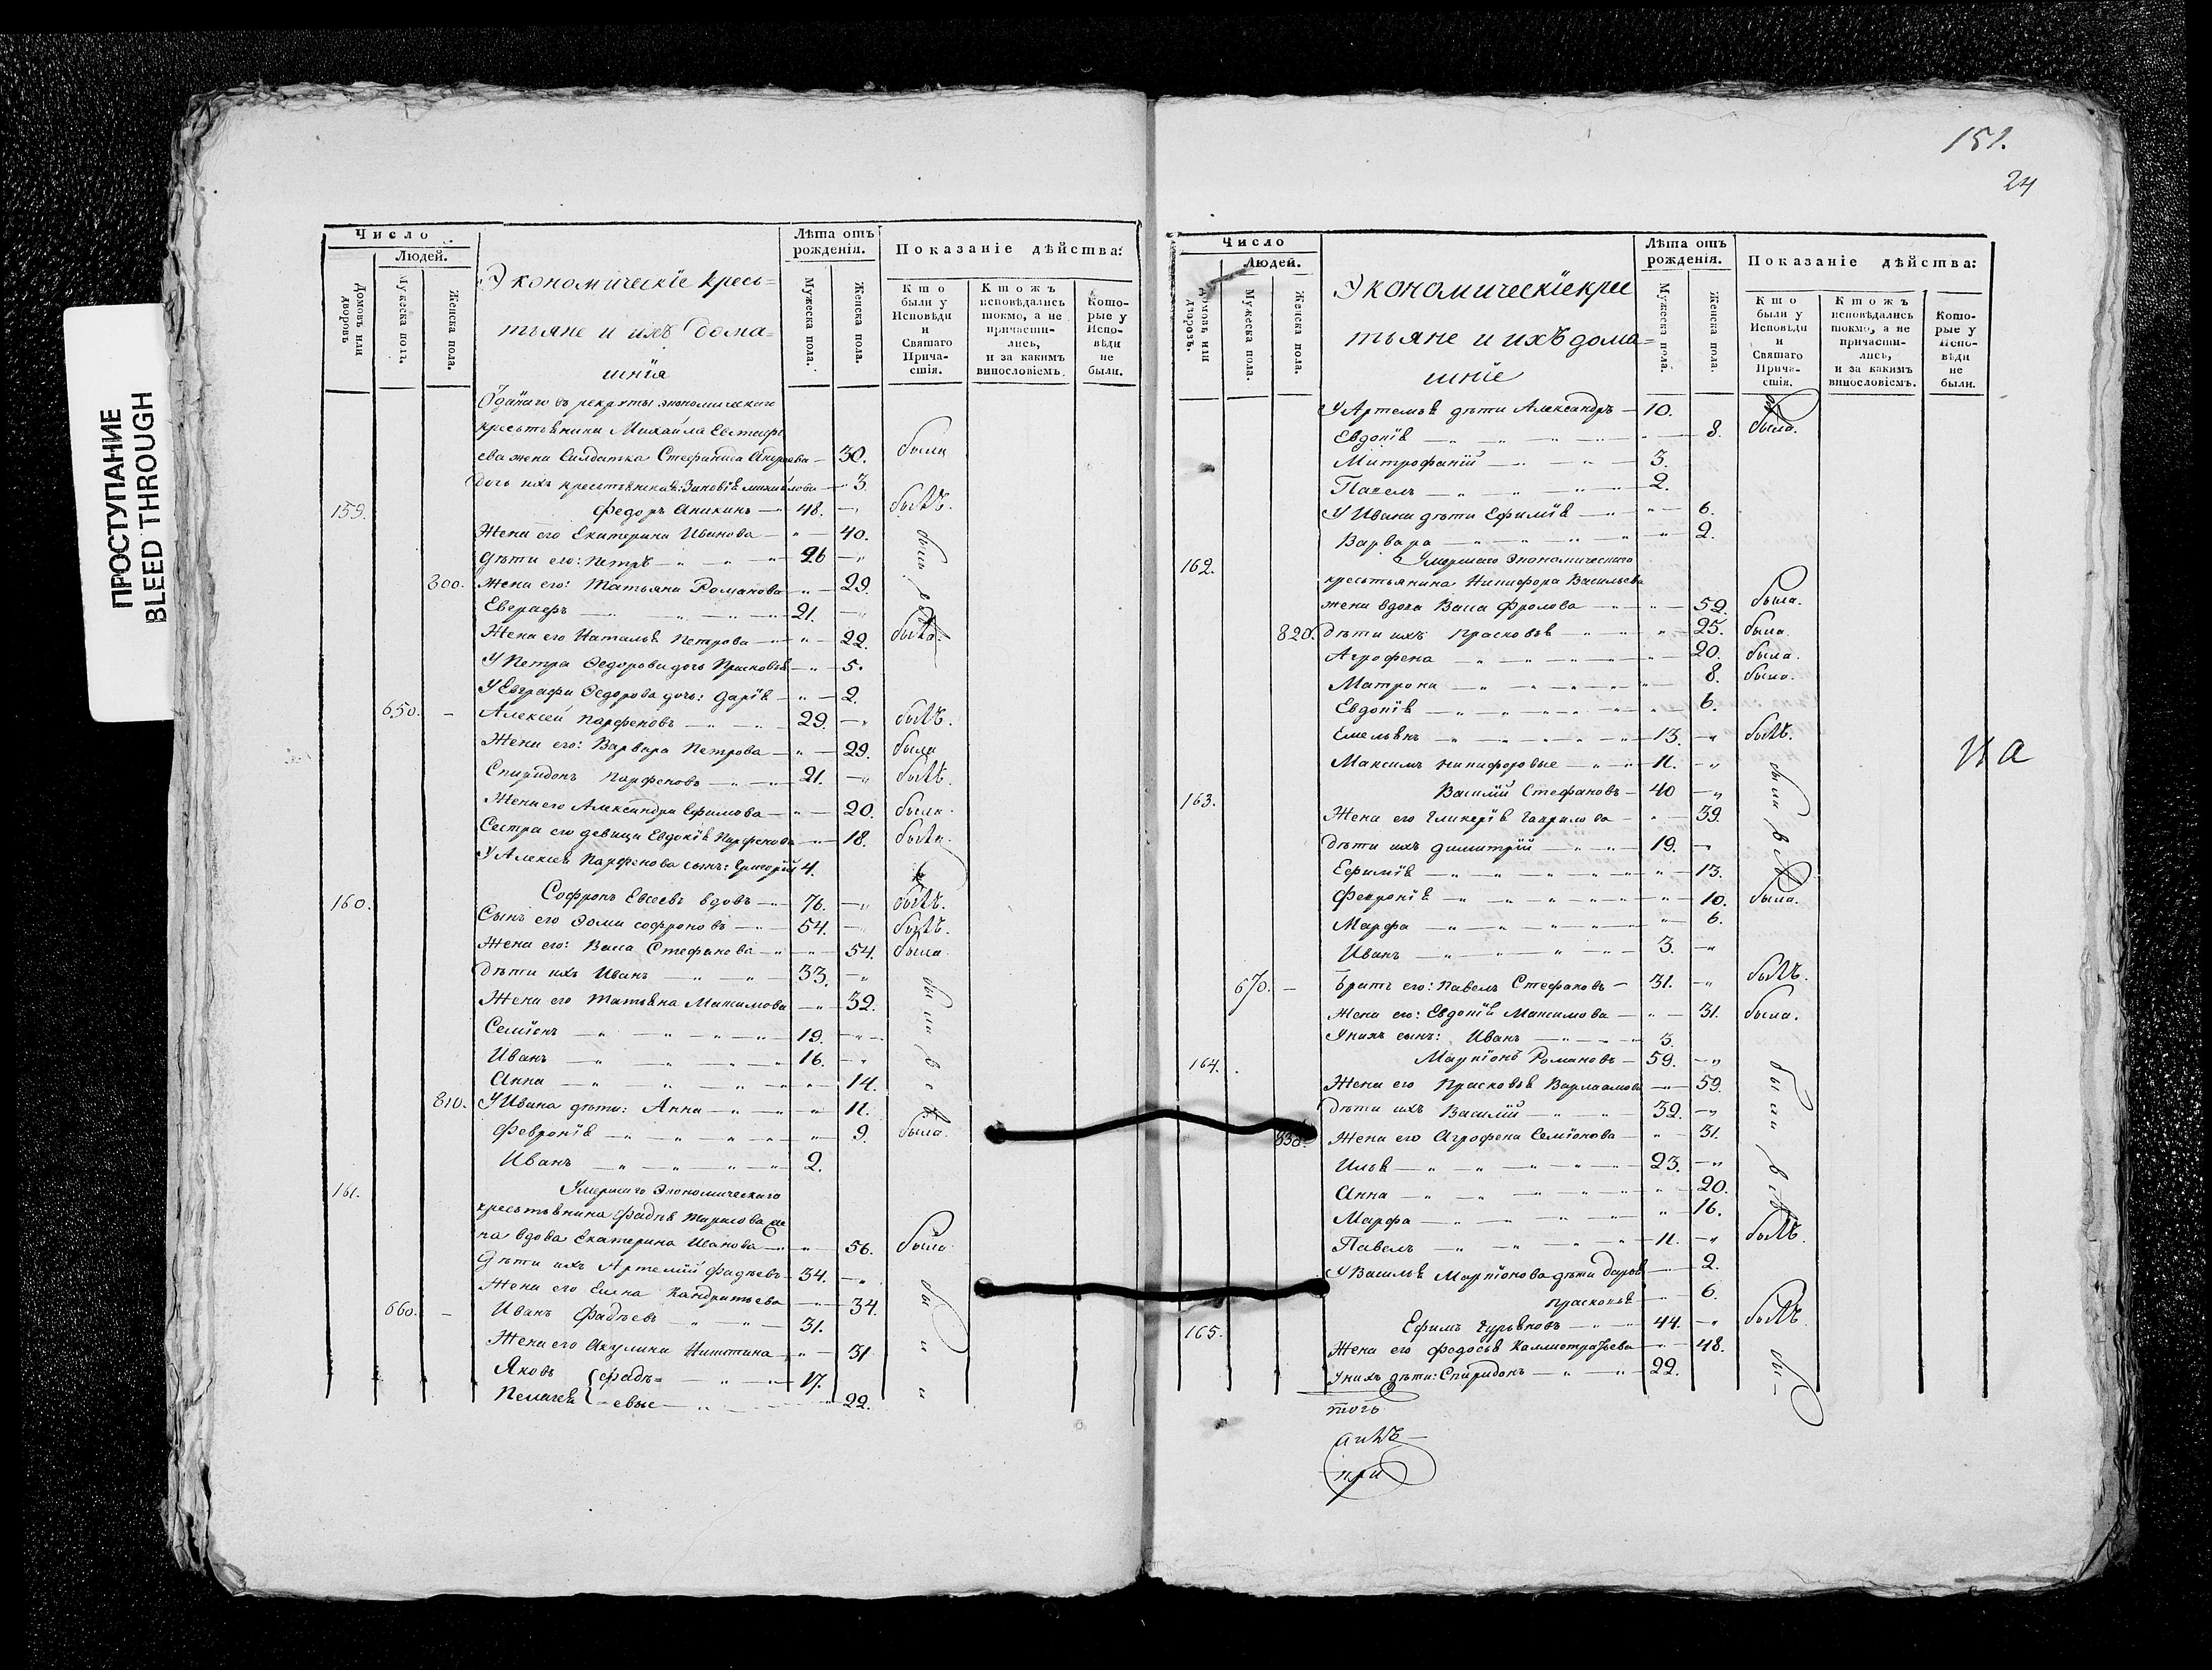 ПРОСТУПАНИЕ
BLEED THROUGH
Число
Людей.
Домовъ или дворовъ
Мужеска полъ.
Женска пола.
Экономическіе кресь=
тьяне и ихъ дома=
шнія
Лѣта отъ рожденія.
Мужеска пола.
Женска пола.
Показаніе дѣйства:
Кто были у Исповѣди и Святаго Прича-стія.
Ктожъ исповѣдались токмо, а не причасти-лись, и за какимъ винословіемъ.
Кото-рые у Испо-вѣди не были.
Отданаго въ рекруты экономическаго
крестьянина Михаила Евстафь
ева жена Салдатка Стефанида Андреева — 30. была
дочь ихъ Зиновія михайлова — 3.
159. Федоръ Аникинъ — 48. — былъ.
Жена его Екатерина Иванова — 40. были
дѣти его: Петръ — 26
800. Жена его: Татьяна Романова — 29. всѣ
Евграфъ — 21.
Жена его Наталья Петрова — 22. была.
У Петра Федорова дочь Прасковья — 5.
У Евграфа Федорова дочь: Дарія — 2.
650. — Алексей Парфеновъ — 29. — былъ.
Жена его: Варвара Петрова — 29. была
Спиридонъ Парфеновъ — 21. — былъ.
Жена его Александра Ефимова — 20. была.
Сестра его девица Евдокія Парфенова — 18. была.
У Алексея Парфенова сынъ: Григорій 4.
160. Софронъ Евсеевъ вдовъ — 76. — былъ.
Сынъ его Фома софроновъ — 54. — былъ.
Жена его: Васса Стефанова — 54. была.
дѣти ихъ Иванъ — 33. — были
Жена его Татьяна Максимова — 32.
Семіонъ — 19.
Иванъ — 16. всѣ
Анна — 14.
810. У Ивана дѣти: Анна — 11.
Февронія — 9. была.
Иванъ — 2.
161. Умершаго Экономическаго
крестьянина Фадея же
на вдова Екатерина Иванова — 56. была
Дѣти ихъ Артемій Фадѣевъ — 34. — бы
Жена его Елена Кандратьева — 34.
660. — Иванъ Фадѣевъ — 31.
Жена его Акулина Никитина — 31
Яковъ { фадѣ= — 17.
Пелагея { =евые — 22.
151.
24
Число
Людей.
Домовъ или дворовъ.
Мужеска пола.
Женска пола.
Экономическіе крес
тьяне и ихъ дома=
шніе
Лѣта отъ рожденія.
Мужеска пола.
Женска пола.
Показаніе дѣйства:
Кто были у Исповѣди и Святаго Прича-стія.
Ктожъ исповѣдались токмо, а не причасти-лись, и за какимъ винословіемъ.
Кото-рые у Испо-вѣди не были.
У Артемья дѣти Александръ — 10.
Евдокія — 8. была.
Митрофаній — 3.
Павелъ — 2.
У Ивана дѣти Ефимія — 6.
Варвара — 2.
162. Умершаго Экономическаго
крестьянина Никифора Васильева
жена вдова Васса Фролова — 52. была.
820. дѣти ихъ Прасковья — 25. была.
Агрофена — 20. была.
Матрона — 8. была.
Евдокія — 6.
Емельянъ — 13. — былъ.
Максимъ никифоровые — 11.
163. Василій Стефановъ — 40 — были
Жена его Гликерія Гаврилова — 39.
дѣти ихъ димитрій — 19. — всѣ
Ефимія — 13.
Февронія — 10. была.
Марфа — 6.
Иванъ — 3.
670. — Братъ его: Павелъ Стефановъ — 31. былъ.
Жена его: Евдокія Максимова — 31. была.
У нихъ сынъ: Иванъ — 3.
164. Маркіонъ Романовъ — 59. — были
Жена его Прасковья Варлаамова — 59.
дѣти ихъ Василій — 32.
830. Жена его Агрофена Семіонова — 31.
Илья — 23. всѣ
Анна — 20.
Марфа — 16.
Павелъ — 11. — былъ.
У Василья Маркіонова дѣти Дарья — 2.
Прасковья — 6.
165. Ефимъ Гурьяновъ — 44. — былъ
Жена его Федосья Каллистратьева — 48. бы-
У нихъ дѣти: Спиридонъ — 22.
на
тогъ
при